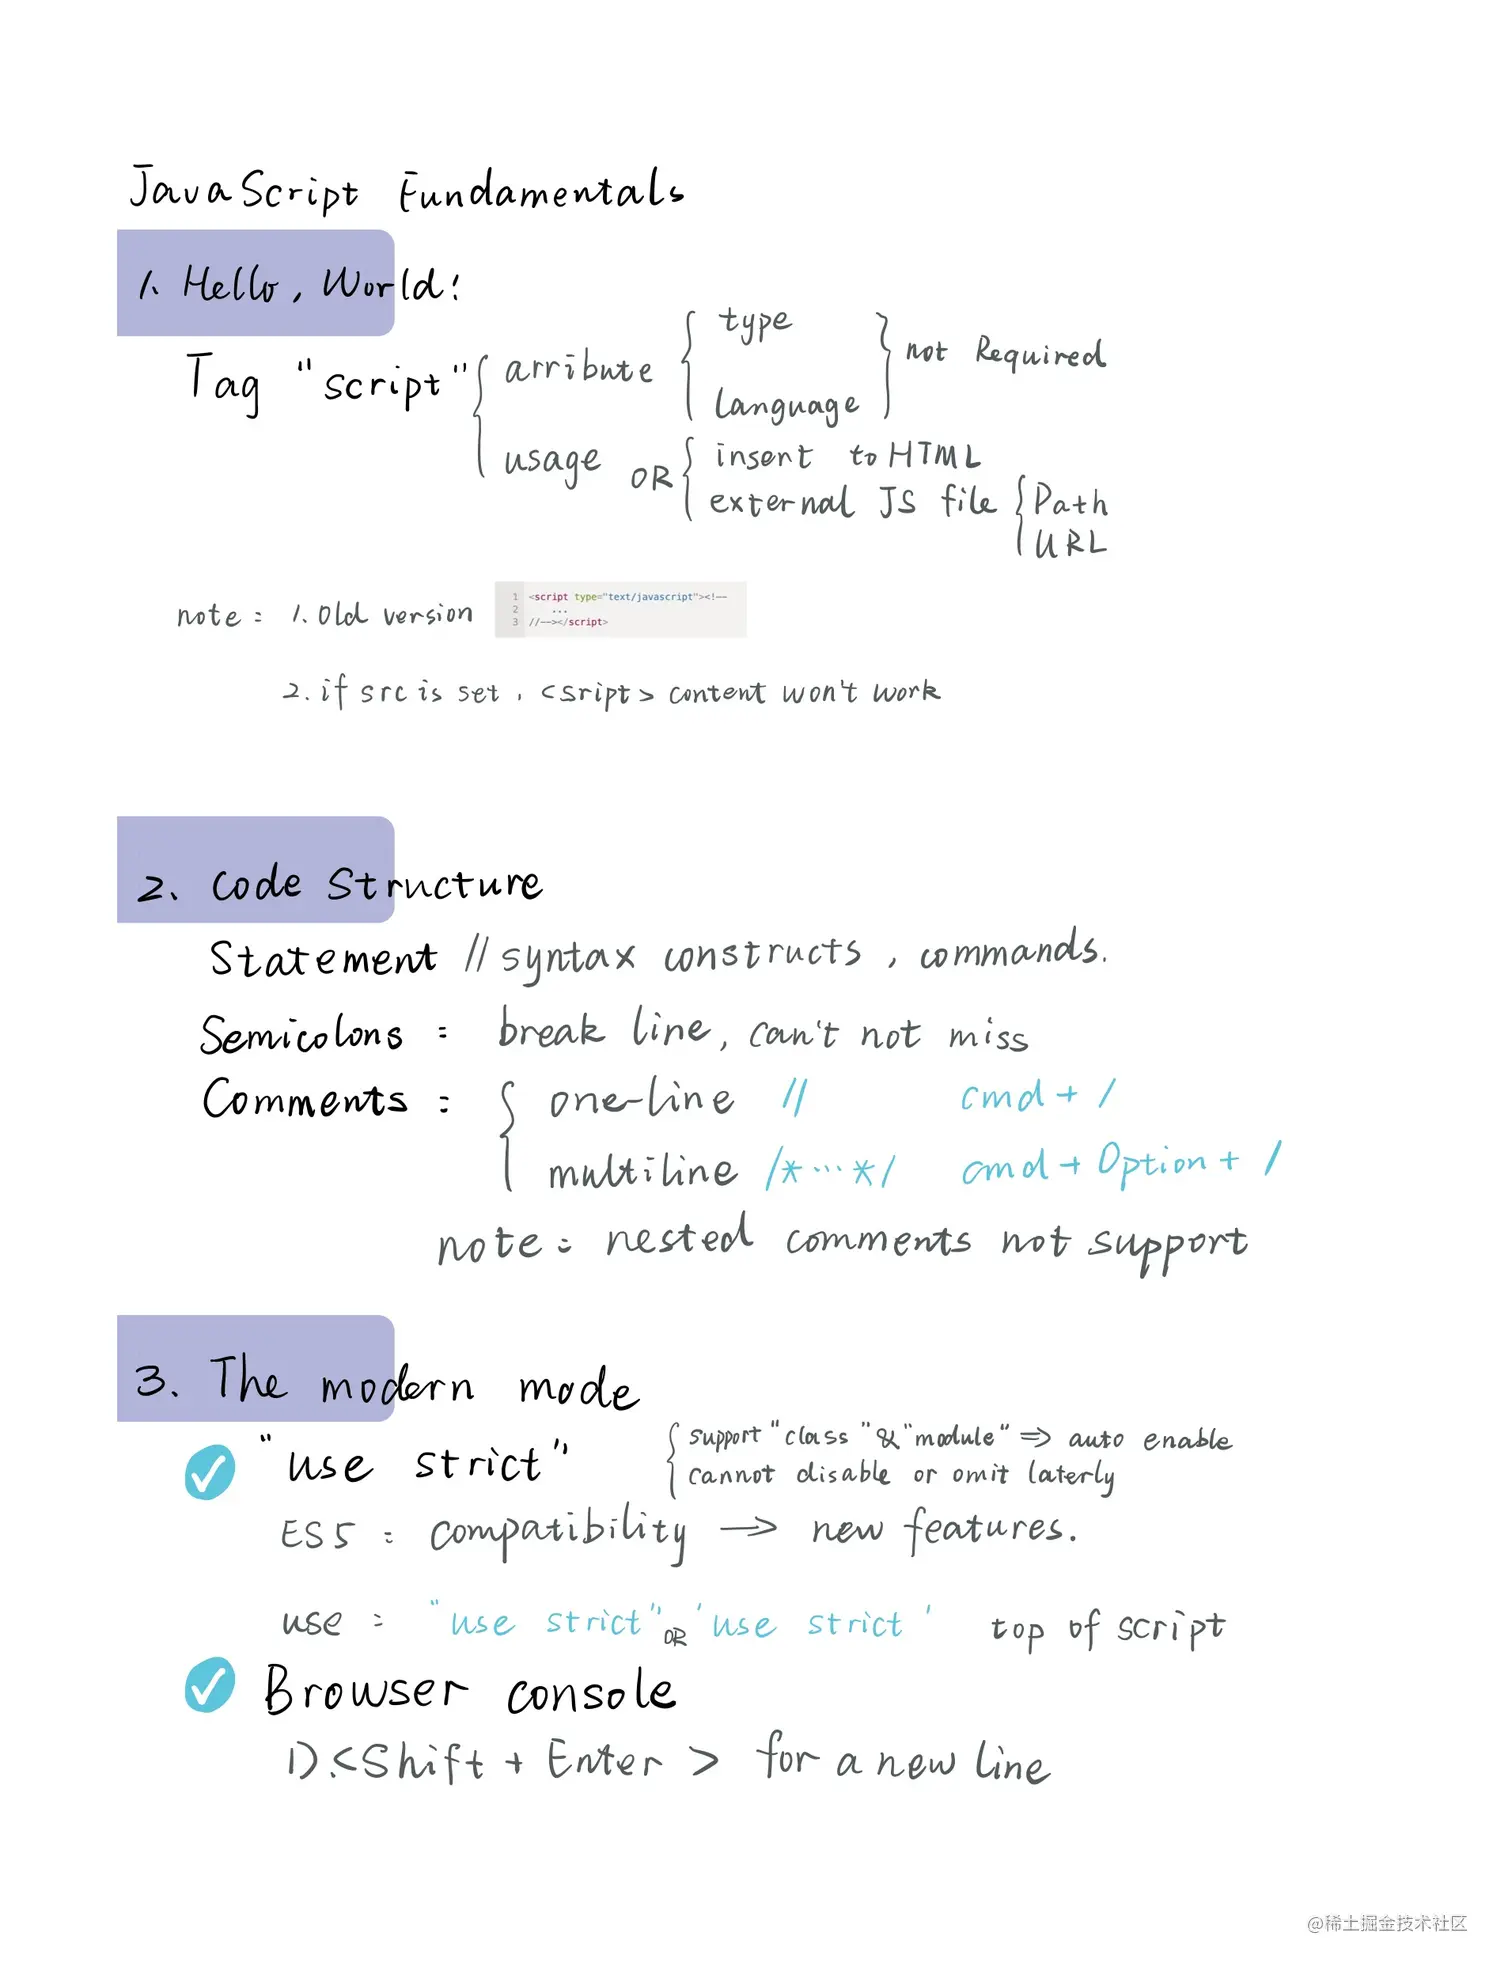 JavaScript Fundamentals
1. Hello, World!
Tag "script"
arribute
type
language
not Required
usage OR
insert to HTML
external JS file
Path
URL
note: 1. Old version
1 <script type="text/javascript"><!--
2 ...
3 //--></script>
2. if src is set, <sript> content won't work
2. Code Structure
Statement // syntax constructs, commands.
Semicolons: break line, can't not miss
Comments:
one-line // cmd + /
multiline /*...*/ cmd + Option + /
note: nested comments not support
3. The modern mode
"use strict"
support "class" & "module" => auto enable
cannot disable or omit laterly
ES5: compatibility → new features.
use: "use strict" OR 'use strict' top of script
Browser console
1). <Shift + Enter> for a new line
@稀土掘金技术社区